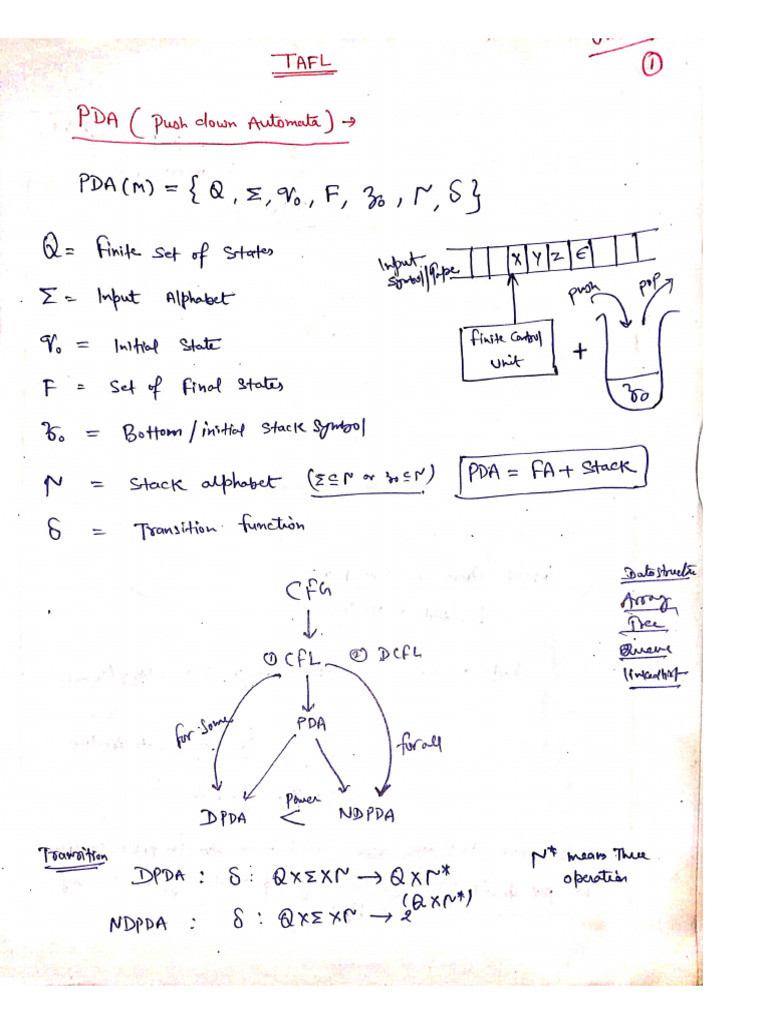 ①
TAFL
PDA ( Push down Automata) →
PDA(M) = { Q, Σ, q₀, F, z₀, Γ, δ }
Q = Finite set of States
Σ = Input Alphabet
q₀ = Initial State
F = Set of Final States
z₀ = Bottom/initial stack symbol
Γ = Stack alphabet (Σ⊆Γ or z₀⊆Γ)
δ = Transition function
Input
Symbol/Tape
X Y Z ∈
Finite Control
Unit
+
push
pop
z₀
PDA = FA + Stack
CFG
① CFL ② DCFL
PDA
for some
for all
DPDA < NDPDA
Power
Datastructure
Array
Tree
Queue
linkedlist
Transition
DPDA : δ : Q×Σ×Γ → Q×Γ*
NDPDA : δ : Q×Σ×Γ → 2^(Q×Γ*)
Γ* means Three
operation